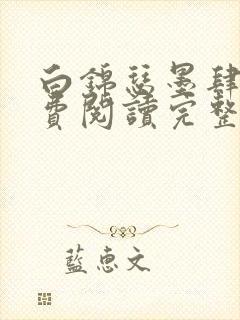 白錦瑟墨肆
費閱讀完整
藍惠文